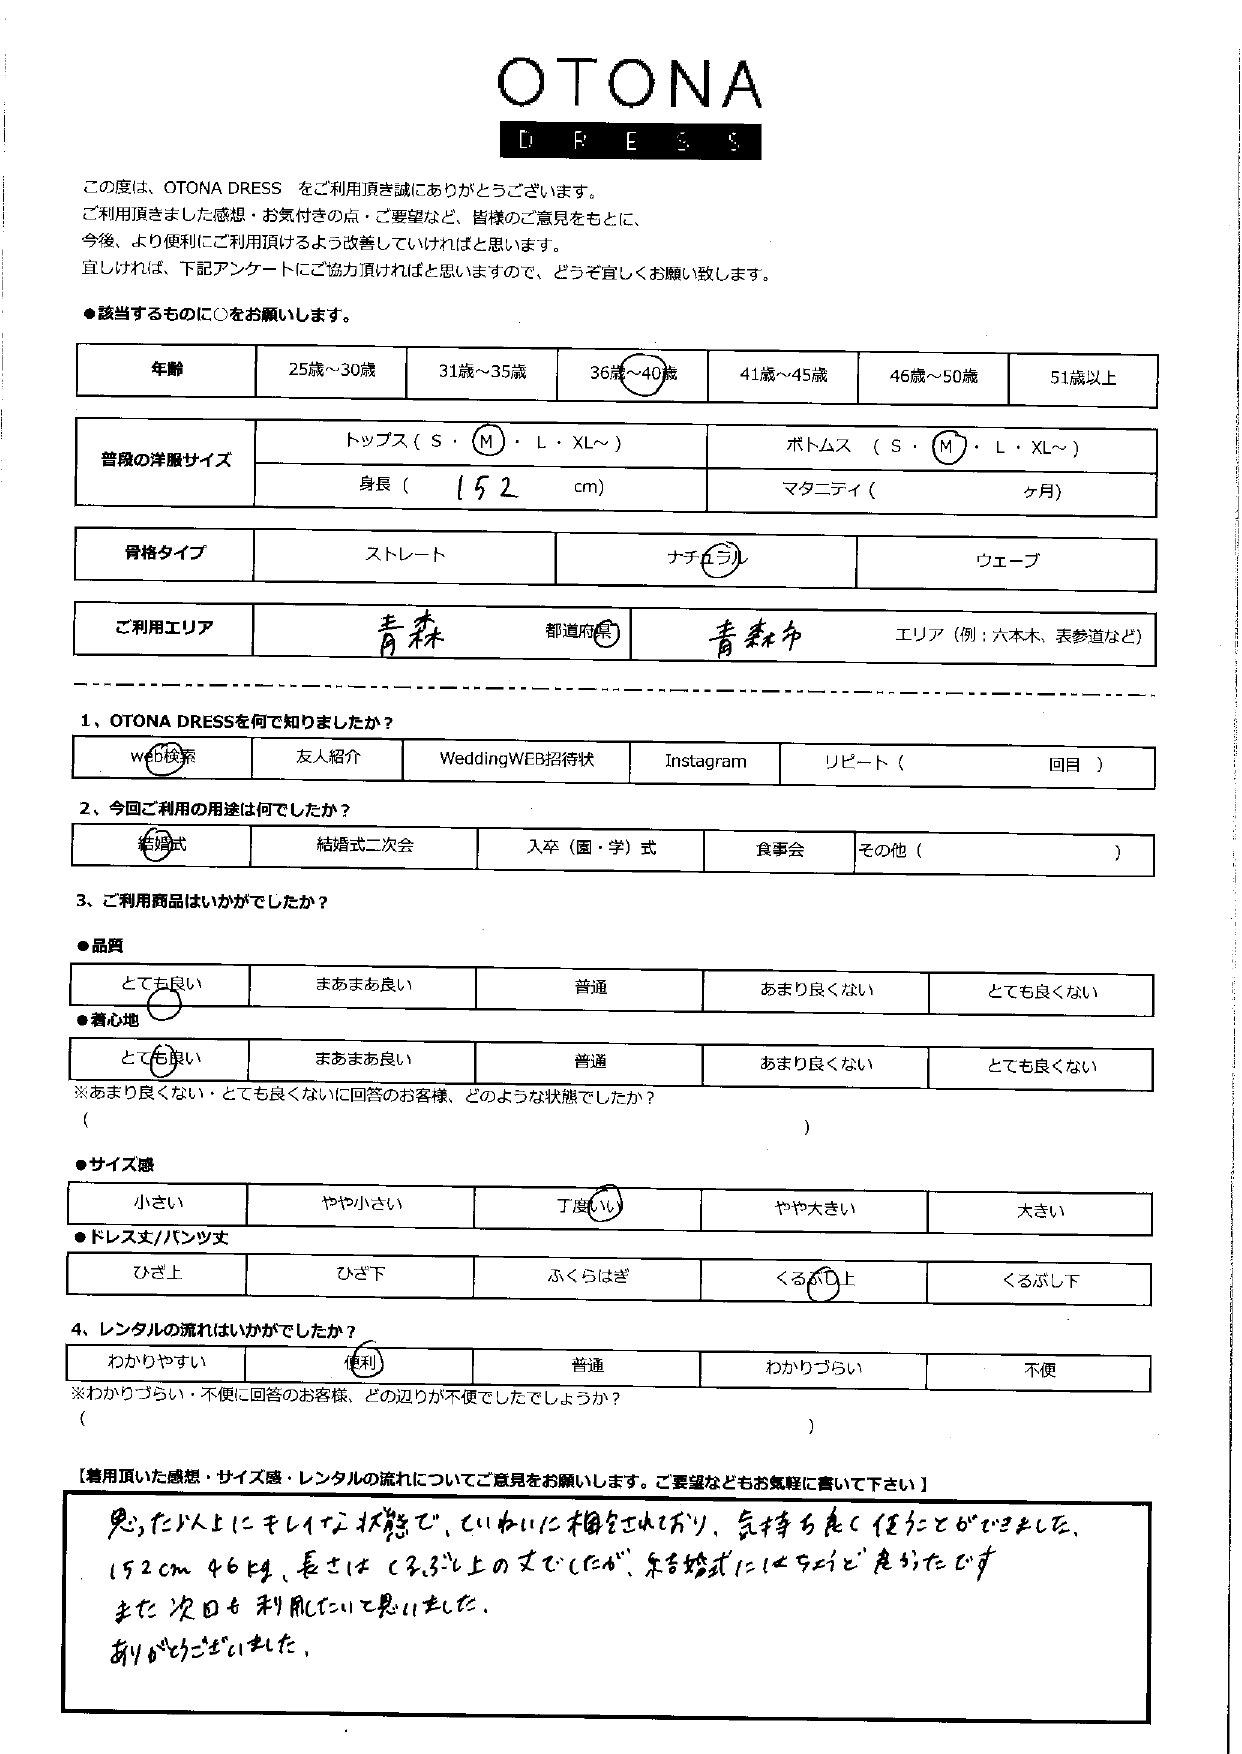 OTONA
DRESS
この度は、OTONA DRESS　をご利用頂き誠にありがとうございます。
ご利用頂きました感想・お気付きの点・ご要望など、皆様のご意見をもとに、
今後、より便利にご利用頂けるよう改善していければと思います。
宜しければ、下記アンケートにご協力頂ければと思いますので、どうぞ宜しくお願い致します。
●該当するものに○をお願いします。
年齢 25歳～30歳 31歳～35歳 36歳～40歳 41歳～45歳 46歳～50歳 51歳以上
普段の洋服サイズ トップス ( S ・ M ・ L ・ XL～ ) ボトムス ( S ・ M ・ L ・ XL～ )
身長 ( 152 cm) マタニティ ( ヶ月)
骨格タイプ ストレート ナチュラル ウェーブ
ご利用エリア 青森 都道府県 青森市 エリア（例；六本木、表参道など）
1、OTONA DRESSを何で知りましたか？
web検索 友人紹介 WeddingWEB招待状 Instagram リピート（ 回目 ）
2、今回ご利用の用途は何でしたか？
結婚式 結婚式二次会 入卒（園・学）式 食事会 その他（ ）
3、ご利用商品はいかがでしたか？
●品質
とても良い まあまあ良い 普通 あまり良くない とても良くない
●着心地
とても良い まあまあ良い 普通 あまり良くない とても良くない
※あまり良くない・とても良くないに回答のお客様、どのような状態でしたか？
( )
●サイズ感
小さい やや小さい 丁度いい やや大きい 大きい
●ドレス丈/パンツ丈
ひざ上 ひざ下 ふくらはぎ くるぶし上 くるぶし下
4、レンタルの流れはいかがでしたか？
わかりやすい 便利 普通 わかりづらい 不便
※わかりづらい・不便に回答のお客様、どの辺りが不便でしたでしょうか？
( )
【着用頂いた感想・サイズ感・レンタルの流れについてご意見をお願いします。ご要望などもお気軽に書いて下さい】
思った以上にキレイな状態で、ていねいに梱包されており、気持ち良く使うことができました。
152cm 46kg、長さはくるぶし上の丈でしたが、結婚式にはちょうど良かったです
また次回も利用したいと思いました。
ありがとうございました。